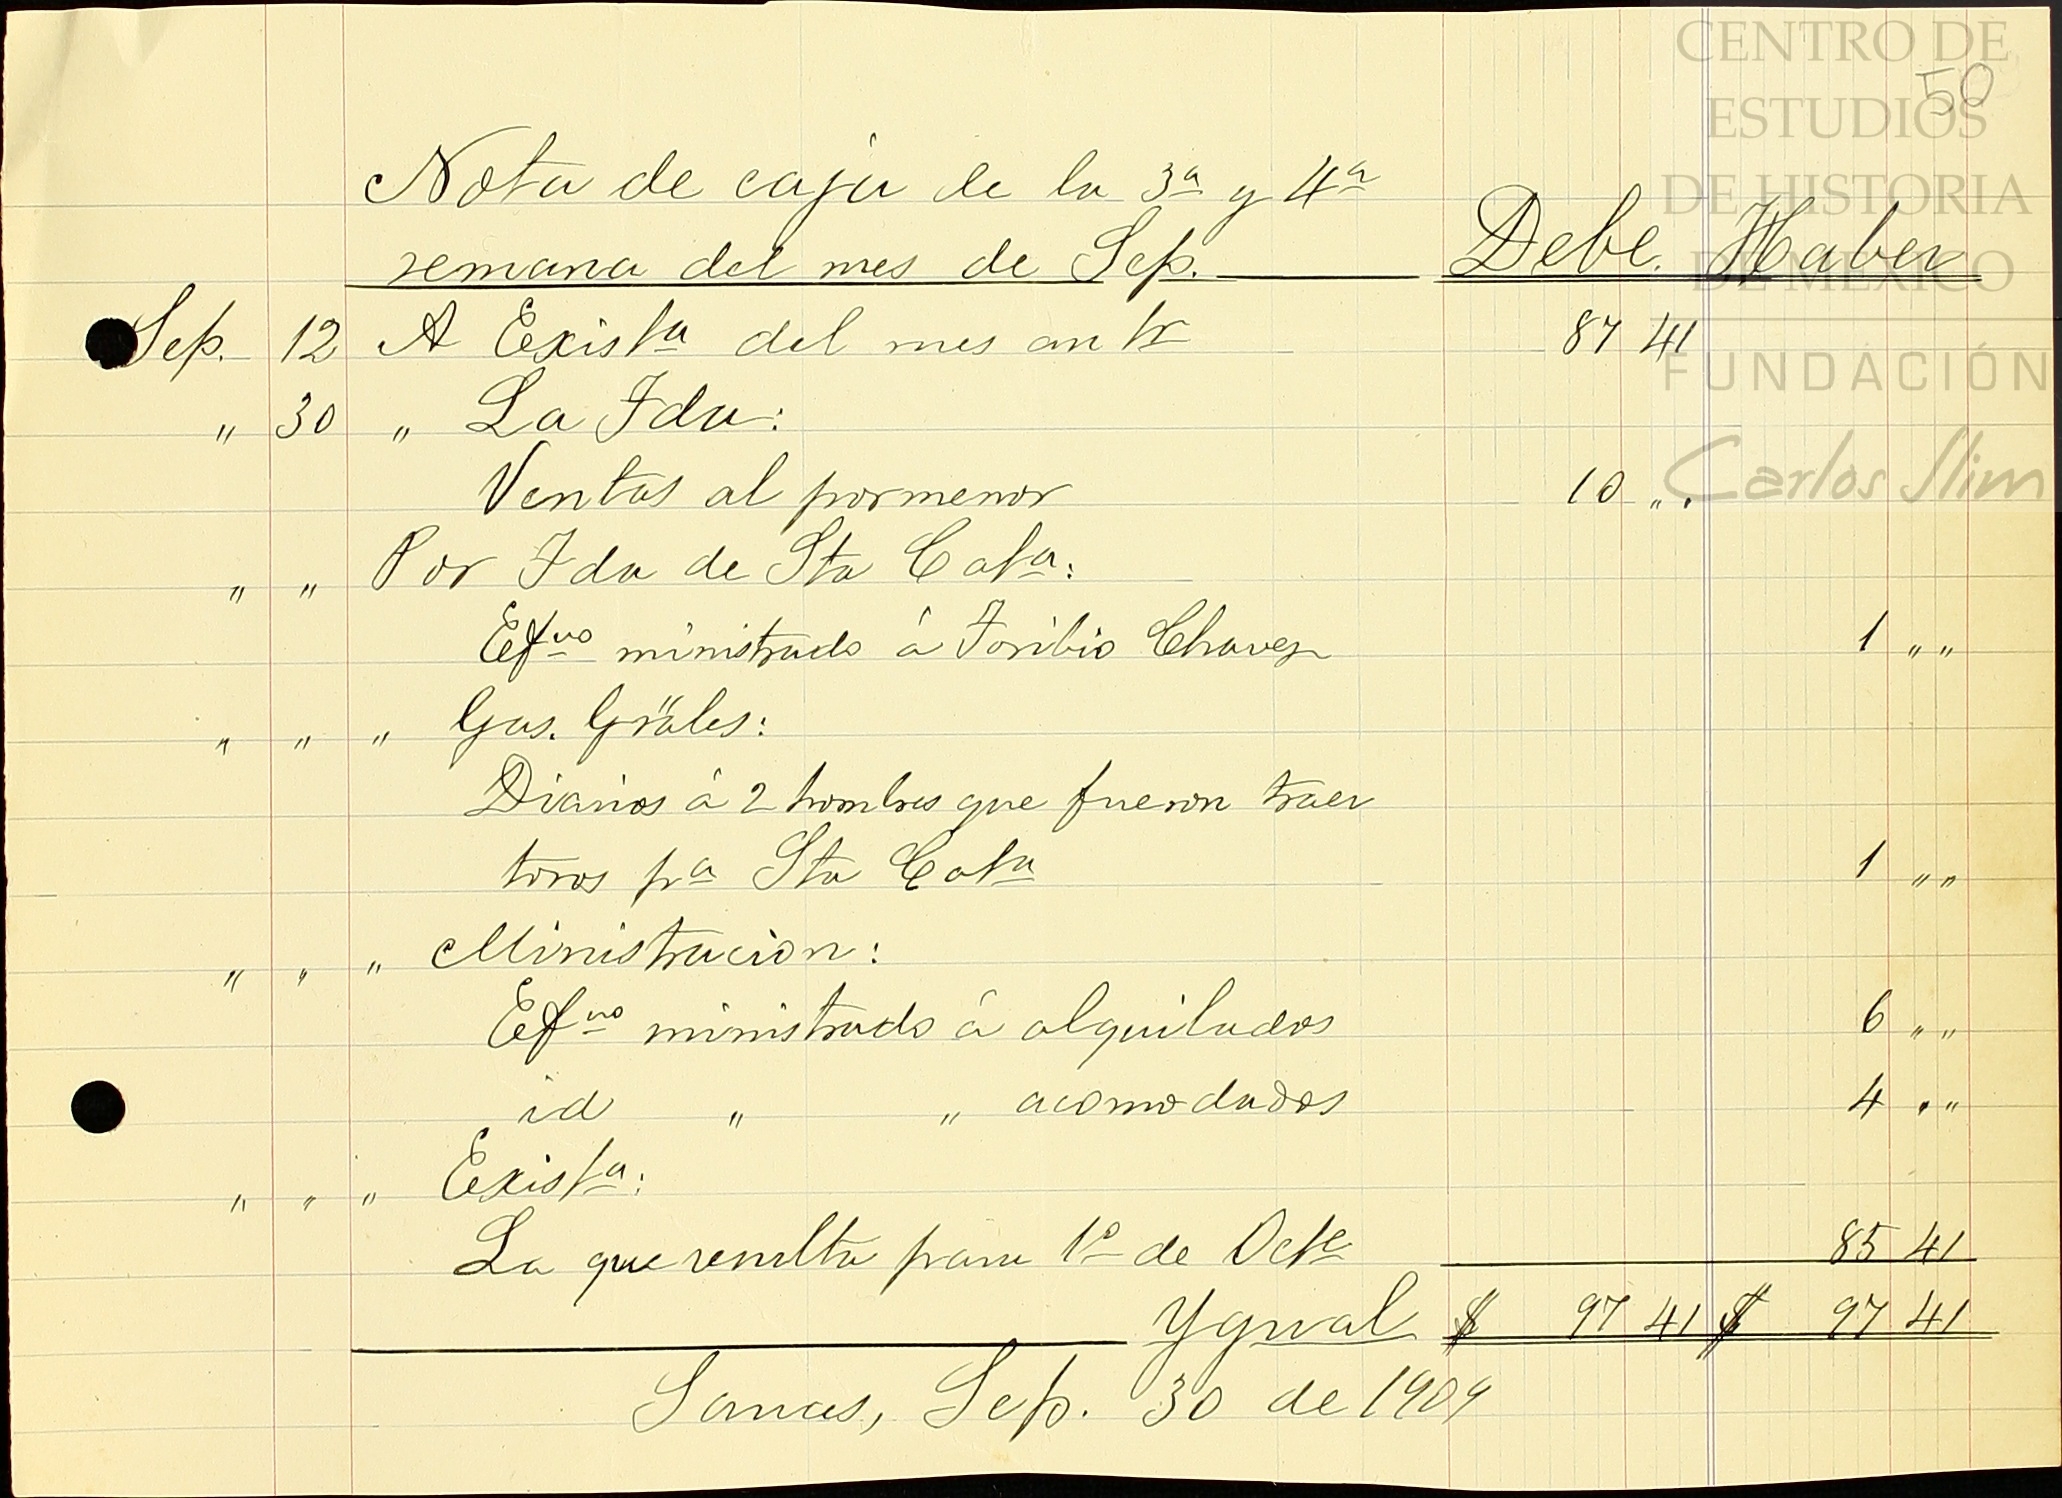 CENTRO DE
ESTUDIOS
DE HISTORIA
DE MÉXICO
FUNDACIÓN
Carlos Slim
50
Nota de caja de la 3ª y 4ª
semana del mes de Sep. Debe. Haber
Sep. 12 A Existª del mes antr 87 41
" 30 " La Fda:
Ventas al pormenor 10 " "
" " Por Fda de Sta Catª:
Efvo ministrado á Toribio Chavez 1 " "
" " " Gas. Gräles:
Diarios á 2 hombres que fueron traer
toros pª Sta Catª 1 " "
" " " Ministracion:
Efvo ministrado á alquilados 6 " "
id " " acomodados 4 " "
" " " Existª:
La que resulta para 1º de Octe 85 41
Ygual $ 97 41 $ 97 41
Sep. 30 de 1909